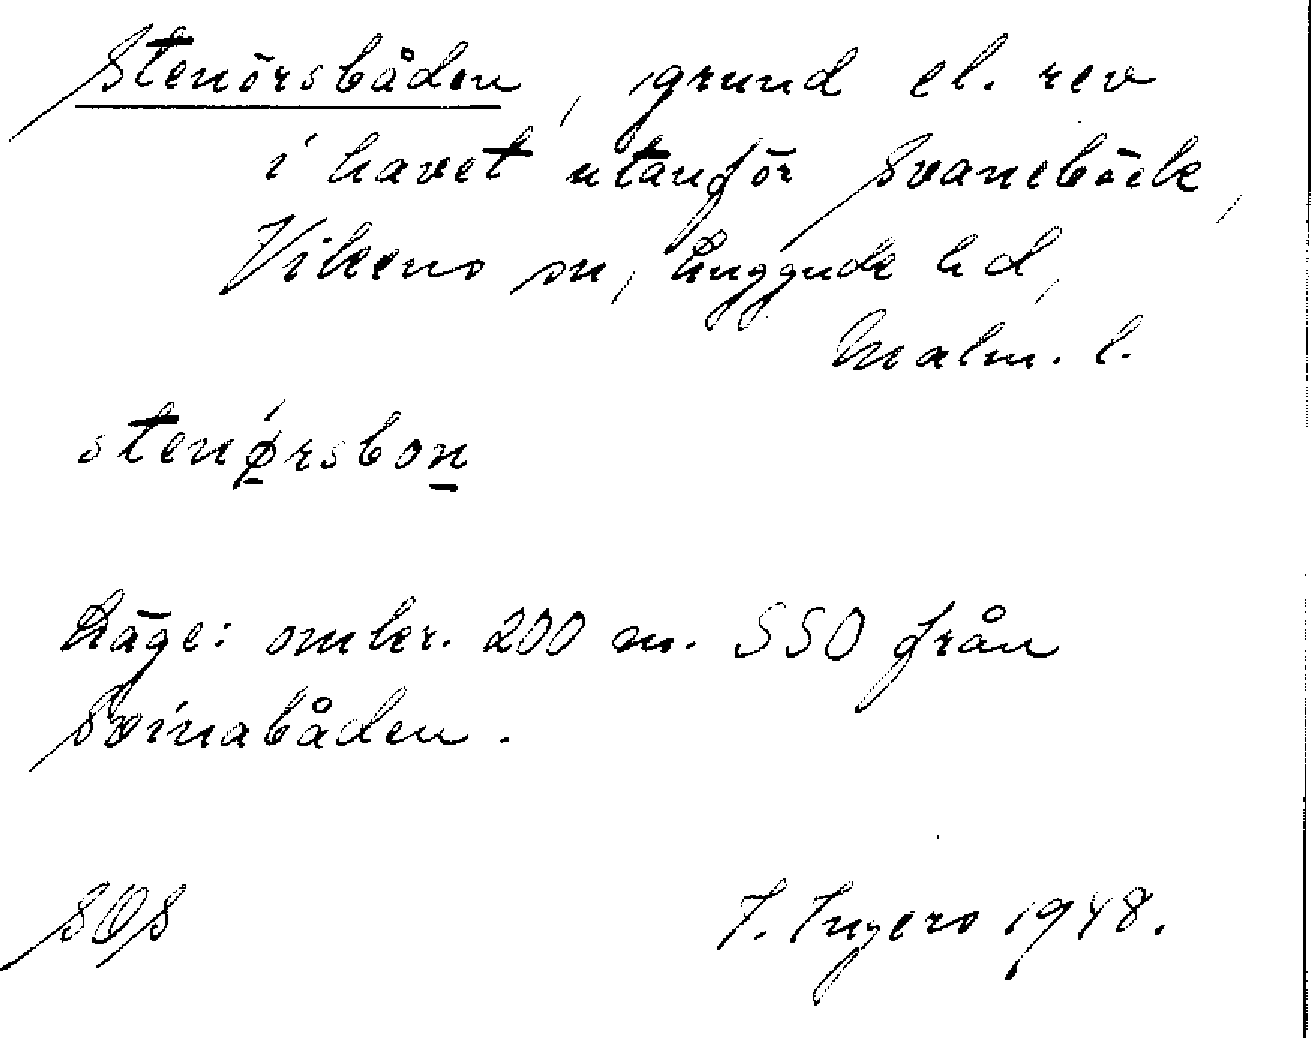 Stenörsbåden, grund el. rev
i havet utanför Svanebäck,
Vikens sn, Luggude hd,
Malm. l.
stenørsbon
Läge: omkr. 200 m. SSO från
Svinabåden.
SOS
I. Ingers 1948.